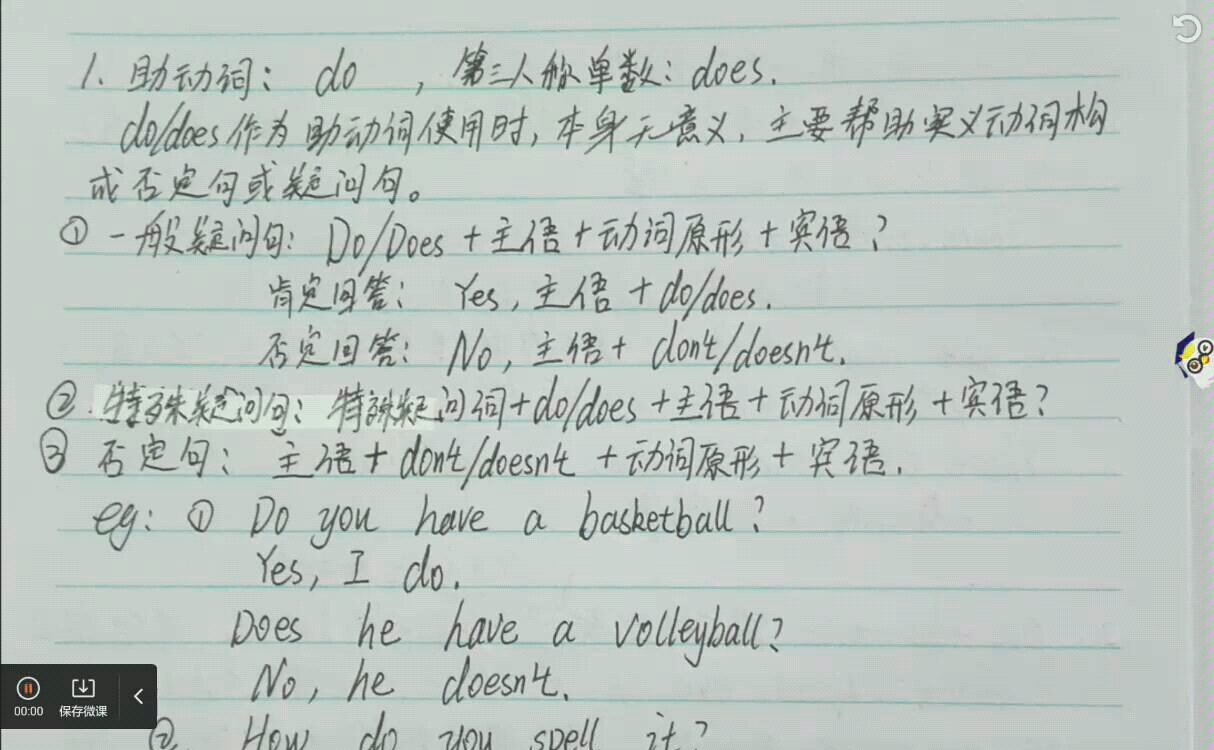 1. 助动词: do , 第三人称单数: does.
do/does作为助动词使用时, 本身无意义, 主要帮助实义动词构
成否定句或疑问句。
① 一般疑问句: Do/Does + 主语 + 动词原形 + 宾语?
肯定回答: Yes, 主语 + do/does.
否定回答: No, 主语 + don't/doesn't.
②. 特殊疑问句: 特殊疑问词 + do/does + 主语 + 动词原形 + 宾语?
③ 否定句: 主语 + don't/doesn't + 动词原形 + 宾语.
eg: ① Do you have a basketball?
Yes, I do.
Does he have a volleyball?
No, he doesn't.
②. How do you spell it?
00:00 保存微课